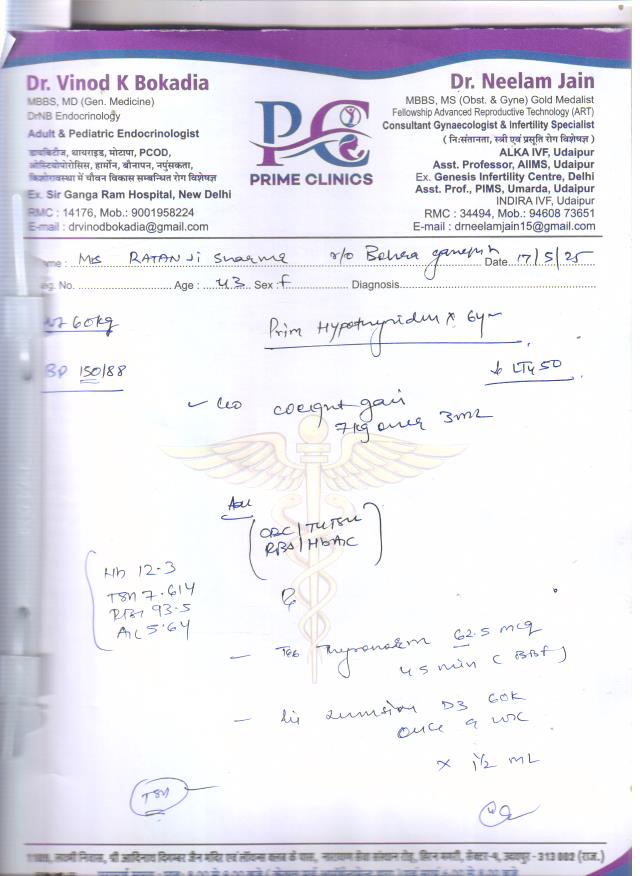 Dr. Vinod K Bokadia
MBBS, MD (Gen. Medicine)
DrNB Endocrinology
Adult & Pediatric Endocrinologist
डायबिटीज, थायराइड, मोटापा, PCOD,
ऑस्टियोपोरोसिस, हार्मोन, बौनापन, नपुंसकता,
किशोरावस्था में यौवन विकास सम्बन्धित रोग विशेषज्ञ
Ex. Sir Ganga Ram Hospital, New Delhi
RMC : 14176, Mob.: 9001958224
E-mail : drvinodbokadia@gmail.com
PC
PRIME CLINICS
Dr. Neelam Jain
MBBS, MS (Obst. & Gyne) Gold Medalist
Fellowship Advanced Reproductive Technology (ART)
Consultant Gynaecologist & Infertility Specialist
( नि:संतानता, स्त्री एवं प्रसूति रोग विशेषज्ञ )
ALKA IVF, Udaipur
Asst. Professor, AIIMS, Udaipur
Ex. Genesis Infertility Centre, Delhi
Asst. Prof., PIMS, Umarda, Udaipur
INDIRA IVF, Udaipur
RMC : 34494, Mob.: 94608 73651
E-mail : drneelamjain15@gmail.com
me : Mrs RATAN Ji Sharma r/o Date 17/5/25
eg. No. Age : 43 Sex : F Diagnosis
60kg
BP 150/88
Prim Hypothyroidism x 6yr
LT4 50
c/o weight gain
7kg over 3m
Adv
CBC / T4TSH
RBS / HbA1C
Hb 12.3
TSH 7.614
RBS 93.5
A1C 5.64
Rx
- Tab Thyronorm 62.5 mcg
45 min (BBF)
- D3 60K
once a wk
x 1½ m
TSH
लक्ष्मी निवास, श्री आदिनाथ दिगम्बर जैन मंदिर एवं लॉयन्स क्लब के पास, नारायण सेवा संस्थान रोड़, हिरन मगरी, सेक्टर-4, उदयपुर - 313 002 (राज.)